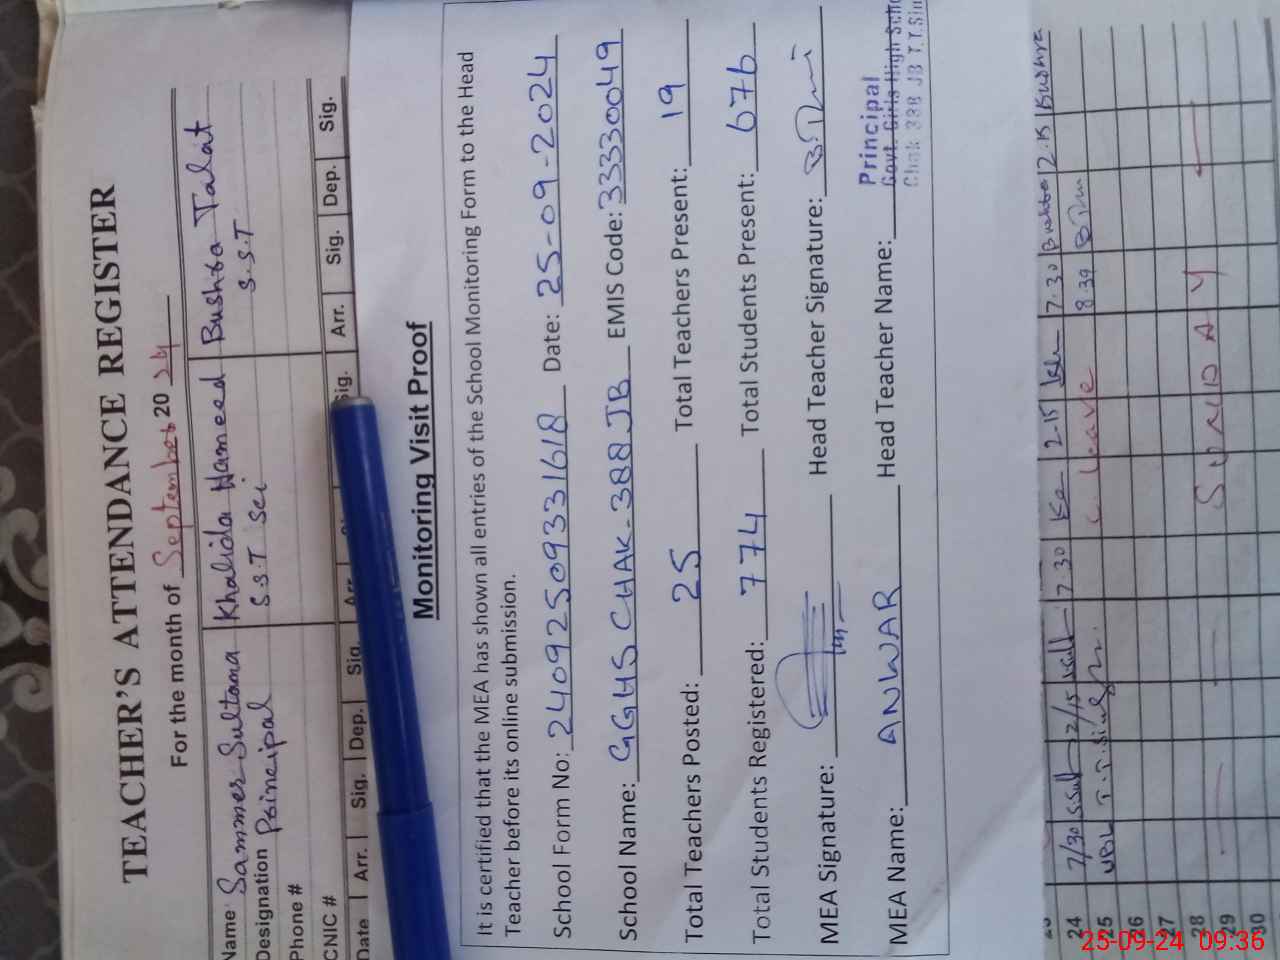 TEACHER'S ATTENDANCE REGISTER
For the month of September 2024
Name Sammer Sultana Khalida Hameed Bushra Talat
Designation Principal S.S.T Sci S.S.T
Phone #
CNIC #
Date Arr. Sig. Dep. Sig. Arr. Sig. Arr. Sig. Dep. Sig.
Monitoring Visit Proof
It is certified that the MEA has shown all entries of the School Monitoring Form to the Head
Teacher before its online submission.
School Form No: 24092509331618 Date: 25-09-2024
School Name: GGHS CHAK-388 JB EMIS Code: 33330049
Total Teachers Posted: 25 Total Teachers Present: 19
Total Students Registered: 774 Total Students Present: 676
MEA Signature: Head Teacher Signature:
MEA Name: ANWAR Head Teacher Name:
Principal
Govt. Girls High
Chak 388 JB T.T.
24 7/30 2/15 7:30 2-15 7.30 Bushra 2.15 Bushra
25 C. Leave 8.39
26
27
28
29 SUNDAY
30
25-09-24 09:36